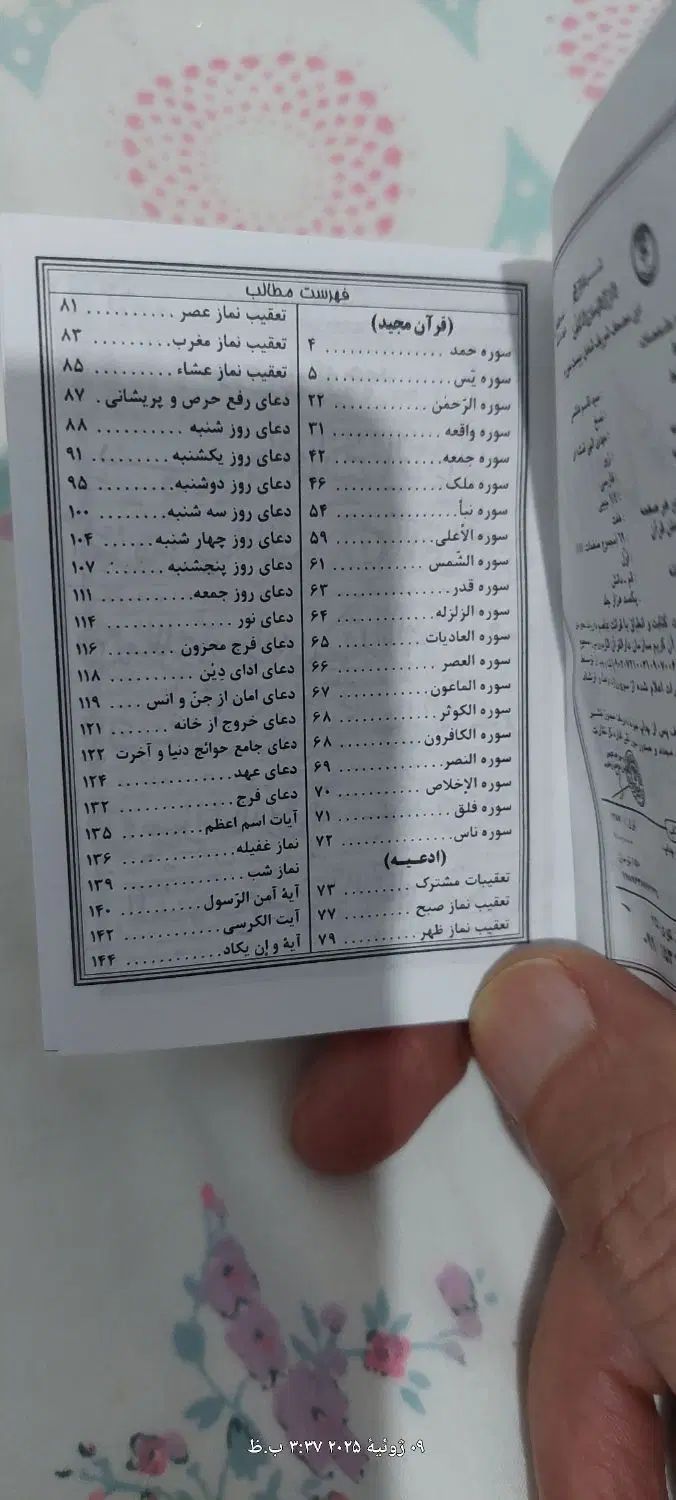 فهرست مطالب
(قرآن مجید)
سوره حمد ............... ۴
سوره یٓس ............... ۵
سوره الرّحمٰن ............ ۲۲
سوره واقعه ............. ۳۱
سوره جمعه ............. ۴۲
سوره ملک ............. ۴۶
سوره نبأ ............... ۵۴
سوره الأعلی ............ ۵۹
سوره الشّمس ............ ۶۱
سوره قدر .............. ۶۳
سوره الزلزله ............ ۶۴
سوره العادیات .......... ۶۵
سوره العصر ............ ۶۶
سوره الماعون .......... ۶۷
سوره الکوثر ............ ۶۸
سوره الکافرون .......... ۶۸
سوره النصر ............ ۶۹
سوره الإخلاص .......... ۷۰
سوره فلق .............. ۷۱
سوره ناس .............. ۷۲
(ادعـیـه)
تعقیبات مشترک ......... ۷۳
تعقیب نماز صبح ........ ۷۷
تعقیب نماز ظهر ......... ۷۹
تعقیب نماز عصر .......... ۸۱
تعقیب نماز مغرب ......... ۸۳
تعقیب نماز عشاء ......... ۸۵
دعای رفع حرص و پریشانی . ۸۷
دعای روز شنبه .......... ۸۸
دعای روز یکشنبه ......... ۹۱
دعای روز دوشنبه ......... ۹۵
دعای روز سه شنبه ........ ۱۰۰
دعای روز چهار شنبه ...... ۱۰۴
دعای روز پنجشنبه ....... ۱۰۷
دعای روز جمعه .......... ۱۱۱
دعای نور ............... ۱۱۴
دعای فرج محزون ........ ۱۱۶
دعای ادای دِیْن .......... ۱۱۸
دعای امان از جنّ و انس .... ۱۱۹
دعای خروج از خانه ....... ۱۲۱
دعای جامع حوائج دنیا و آخرت ۱۲۲
دعای عهد .............. ۱۲۴
دعای فرج .............. ۱۳۲
آیات اسم اعظم .......... ۱۳۵
نماز غفیله .............. ۱۳۶
نماز شب ............... ۱۳۹
آیۀ آمن الرّسول .......... ۱۴۰
آیت الکرسی ............ ۱۴۲
آیۀ و إن یکاد ............ ۱۴۴
۰۹ ژوئیهٔ ۲۰۲۵ ۳:۳۷ ب.ظ